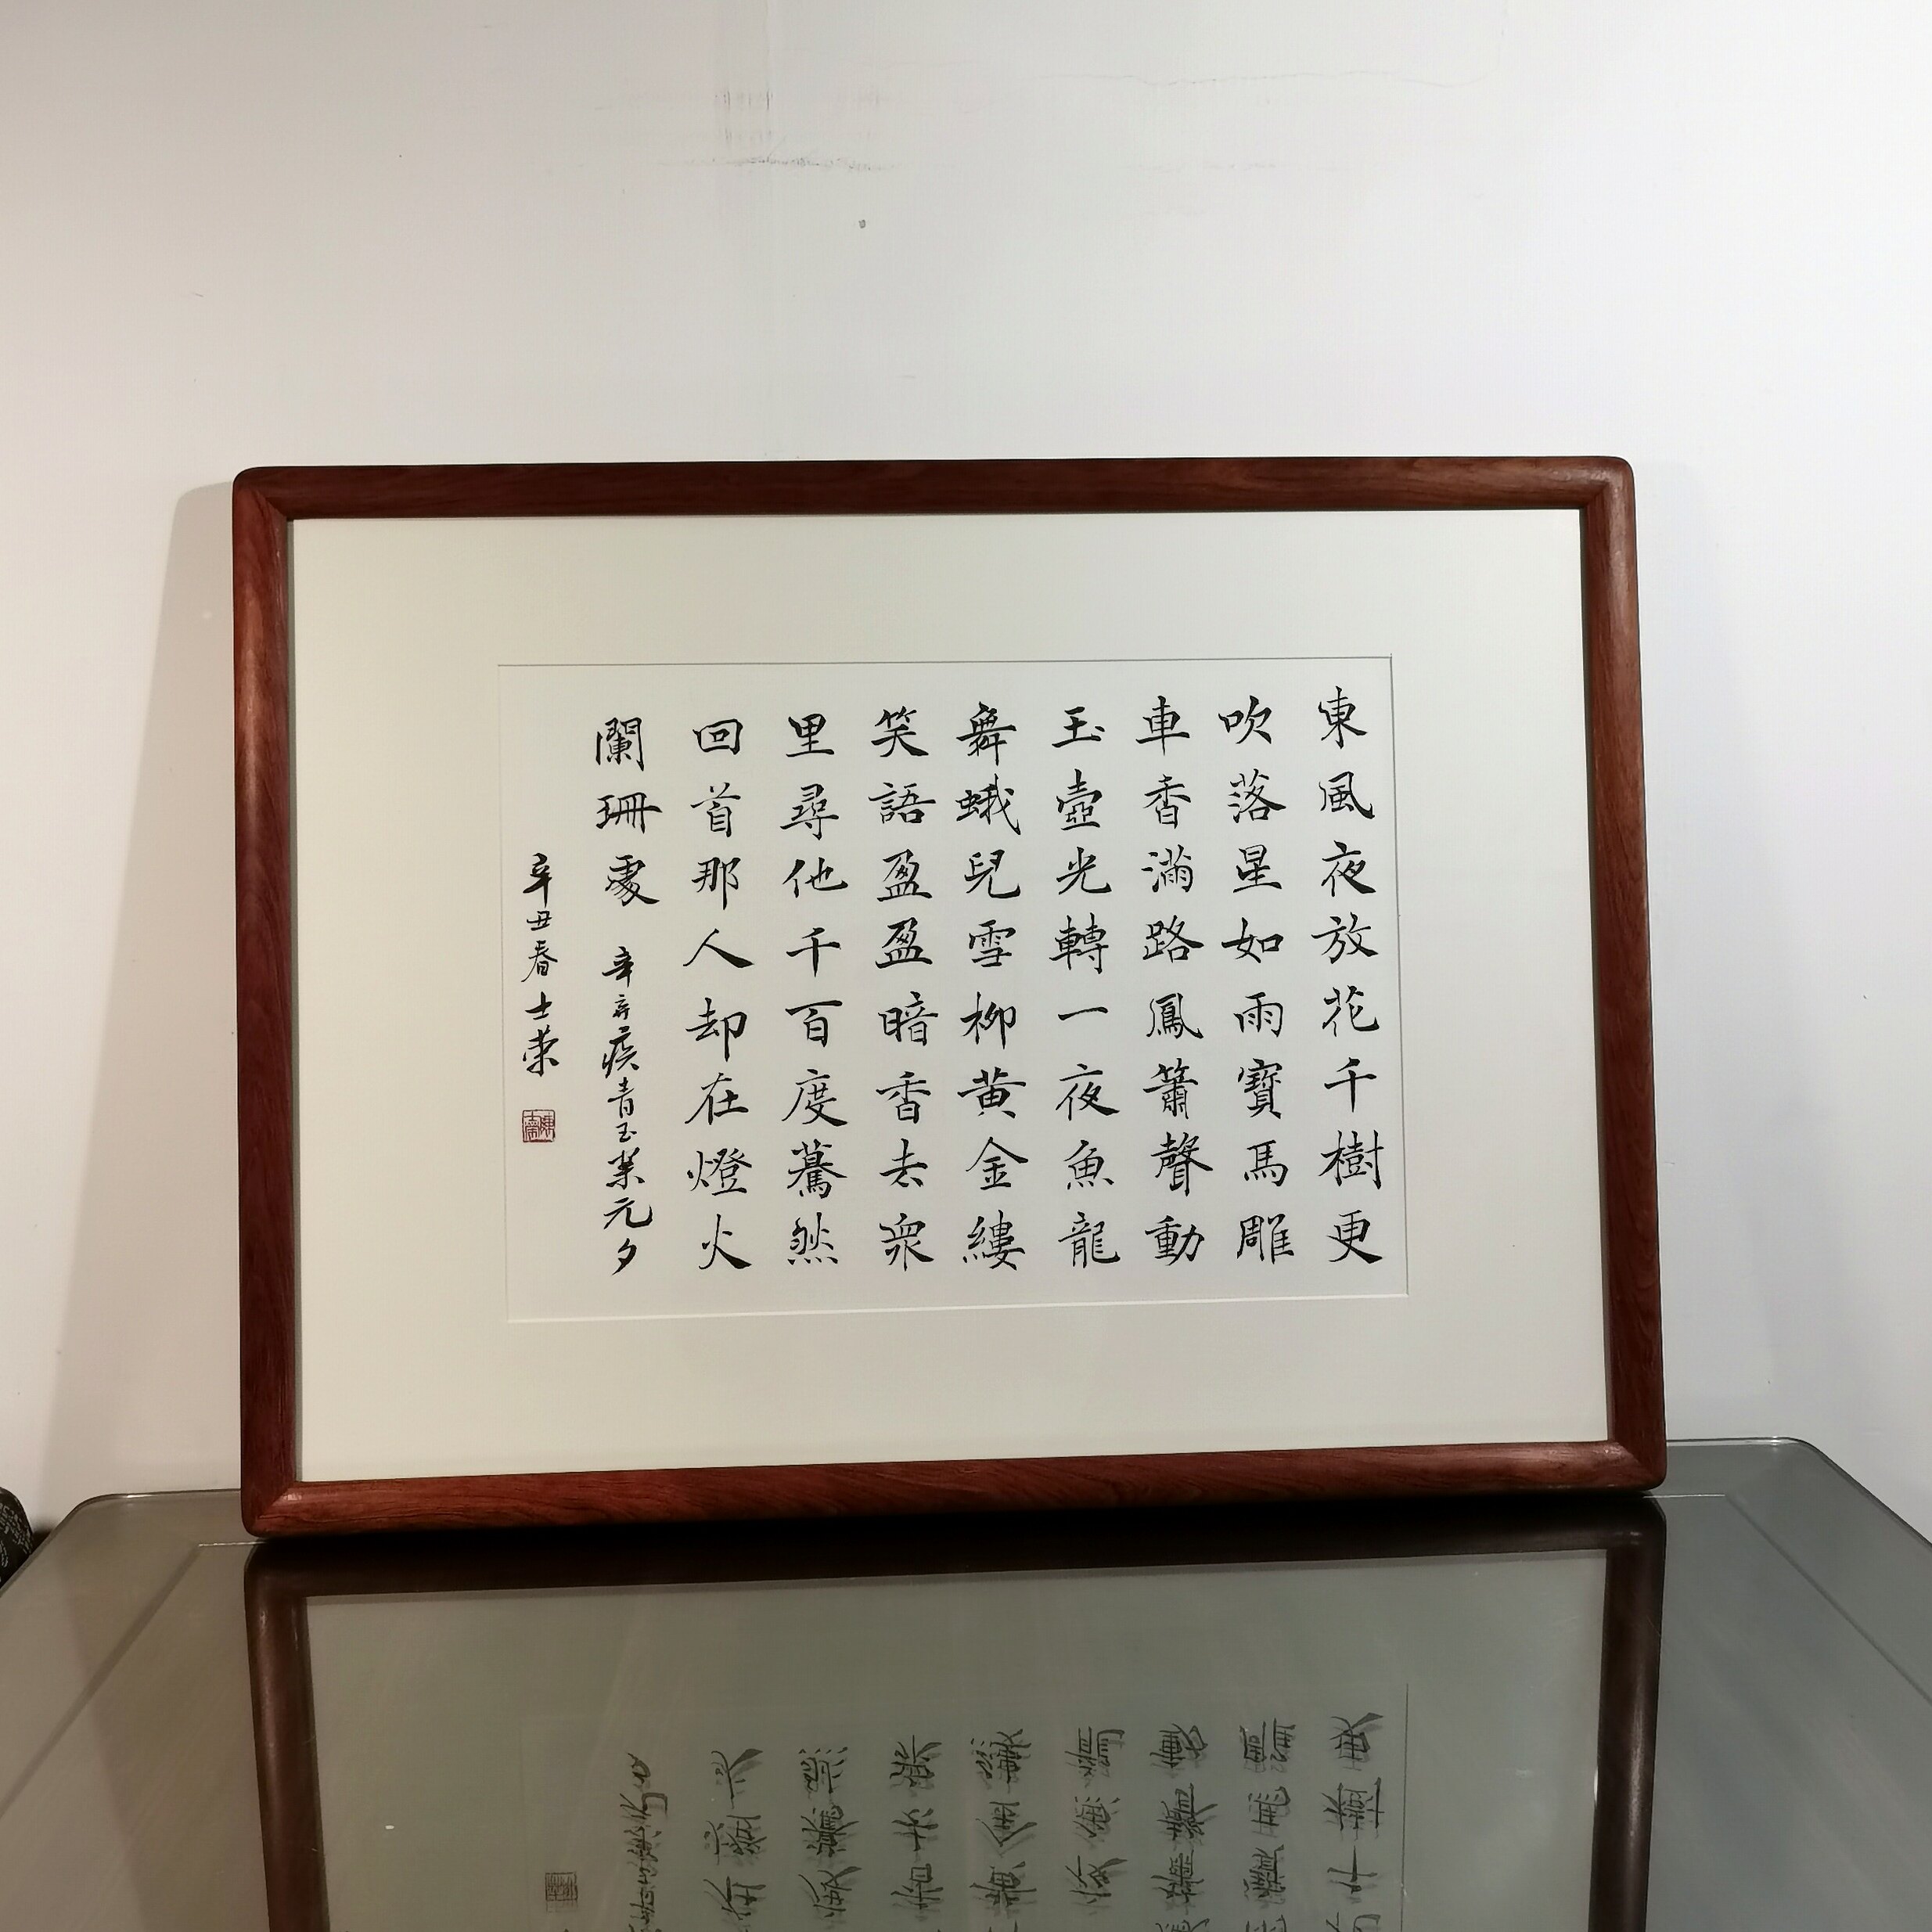 東風夜放花千樹更
吹落星如雨寶馬雕
車香滿路鳳簫聲動
玉壺光轉一夜魚龍
舞蛾兒雪柳黃金縷
笑語盈盈暗香去衆
里尋他千百度驀然
回首那人却在燈火
闌珊處 辛棄疾青玉案元夕
辛丑春士榮